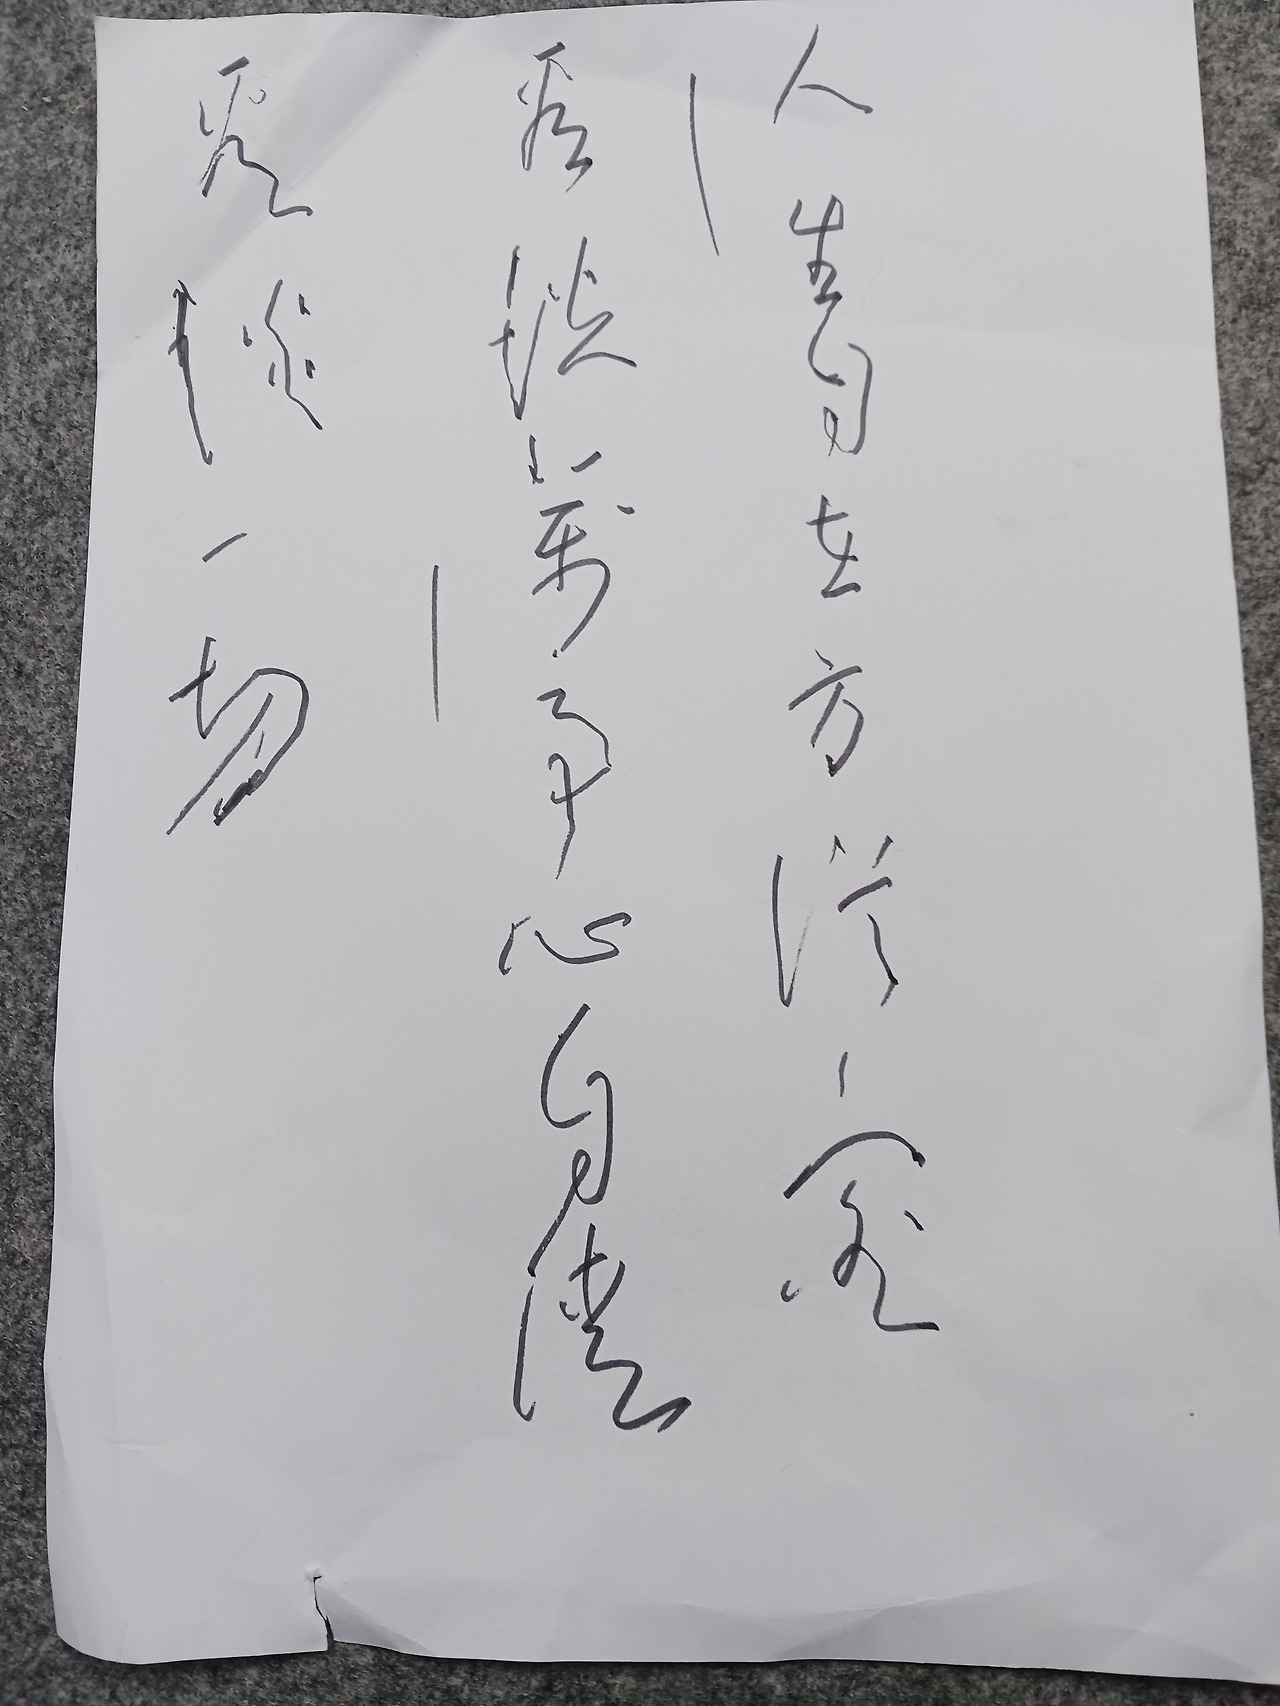 人生自在方從容
看淡萬事心自清
看淡一切